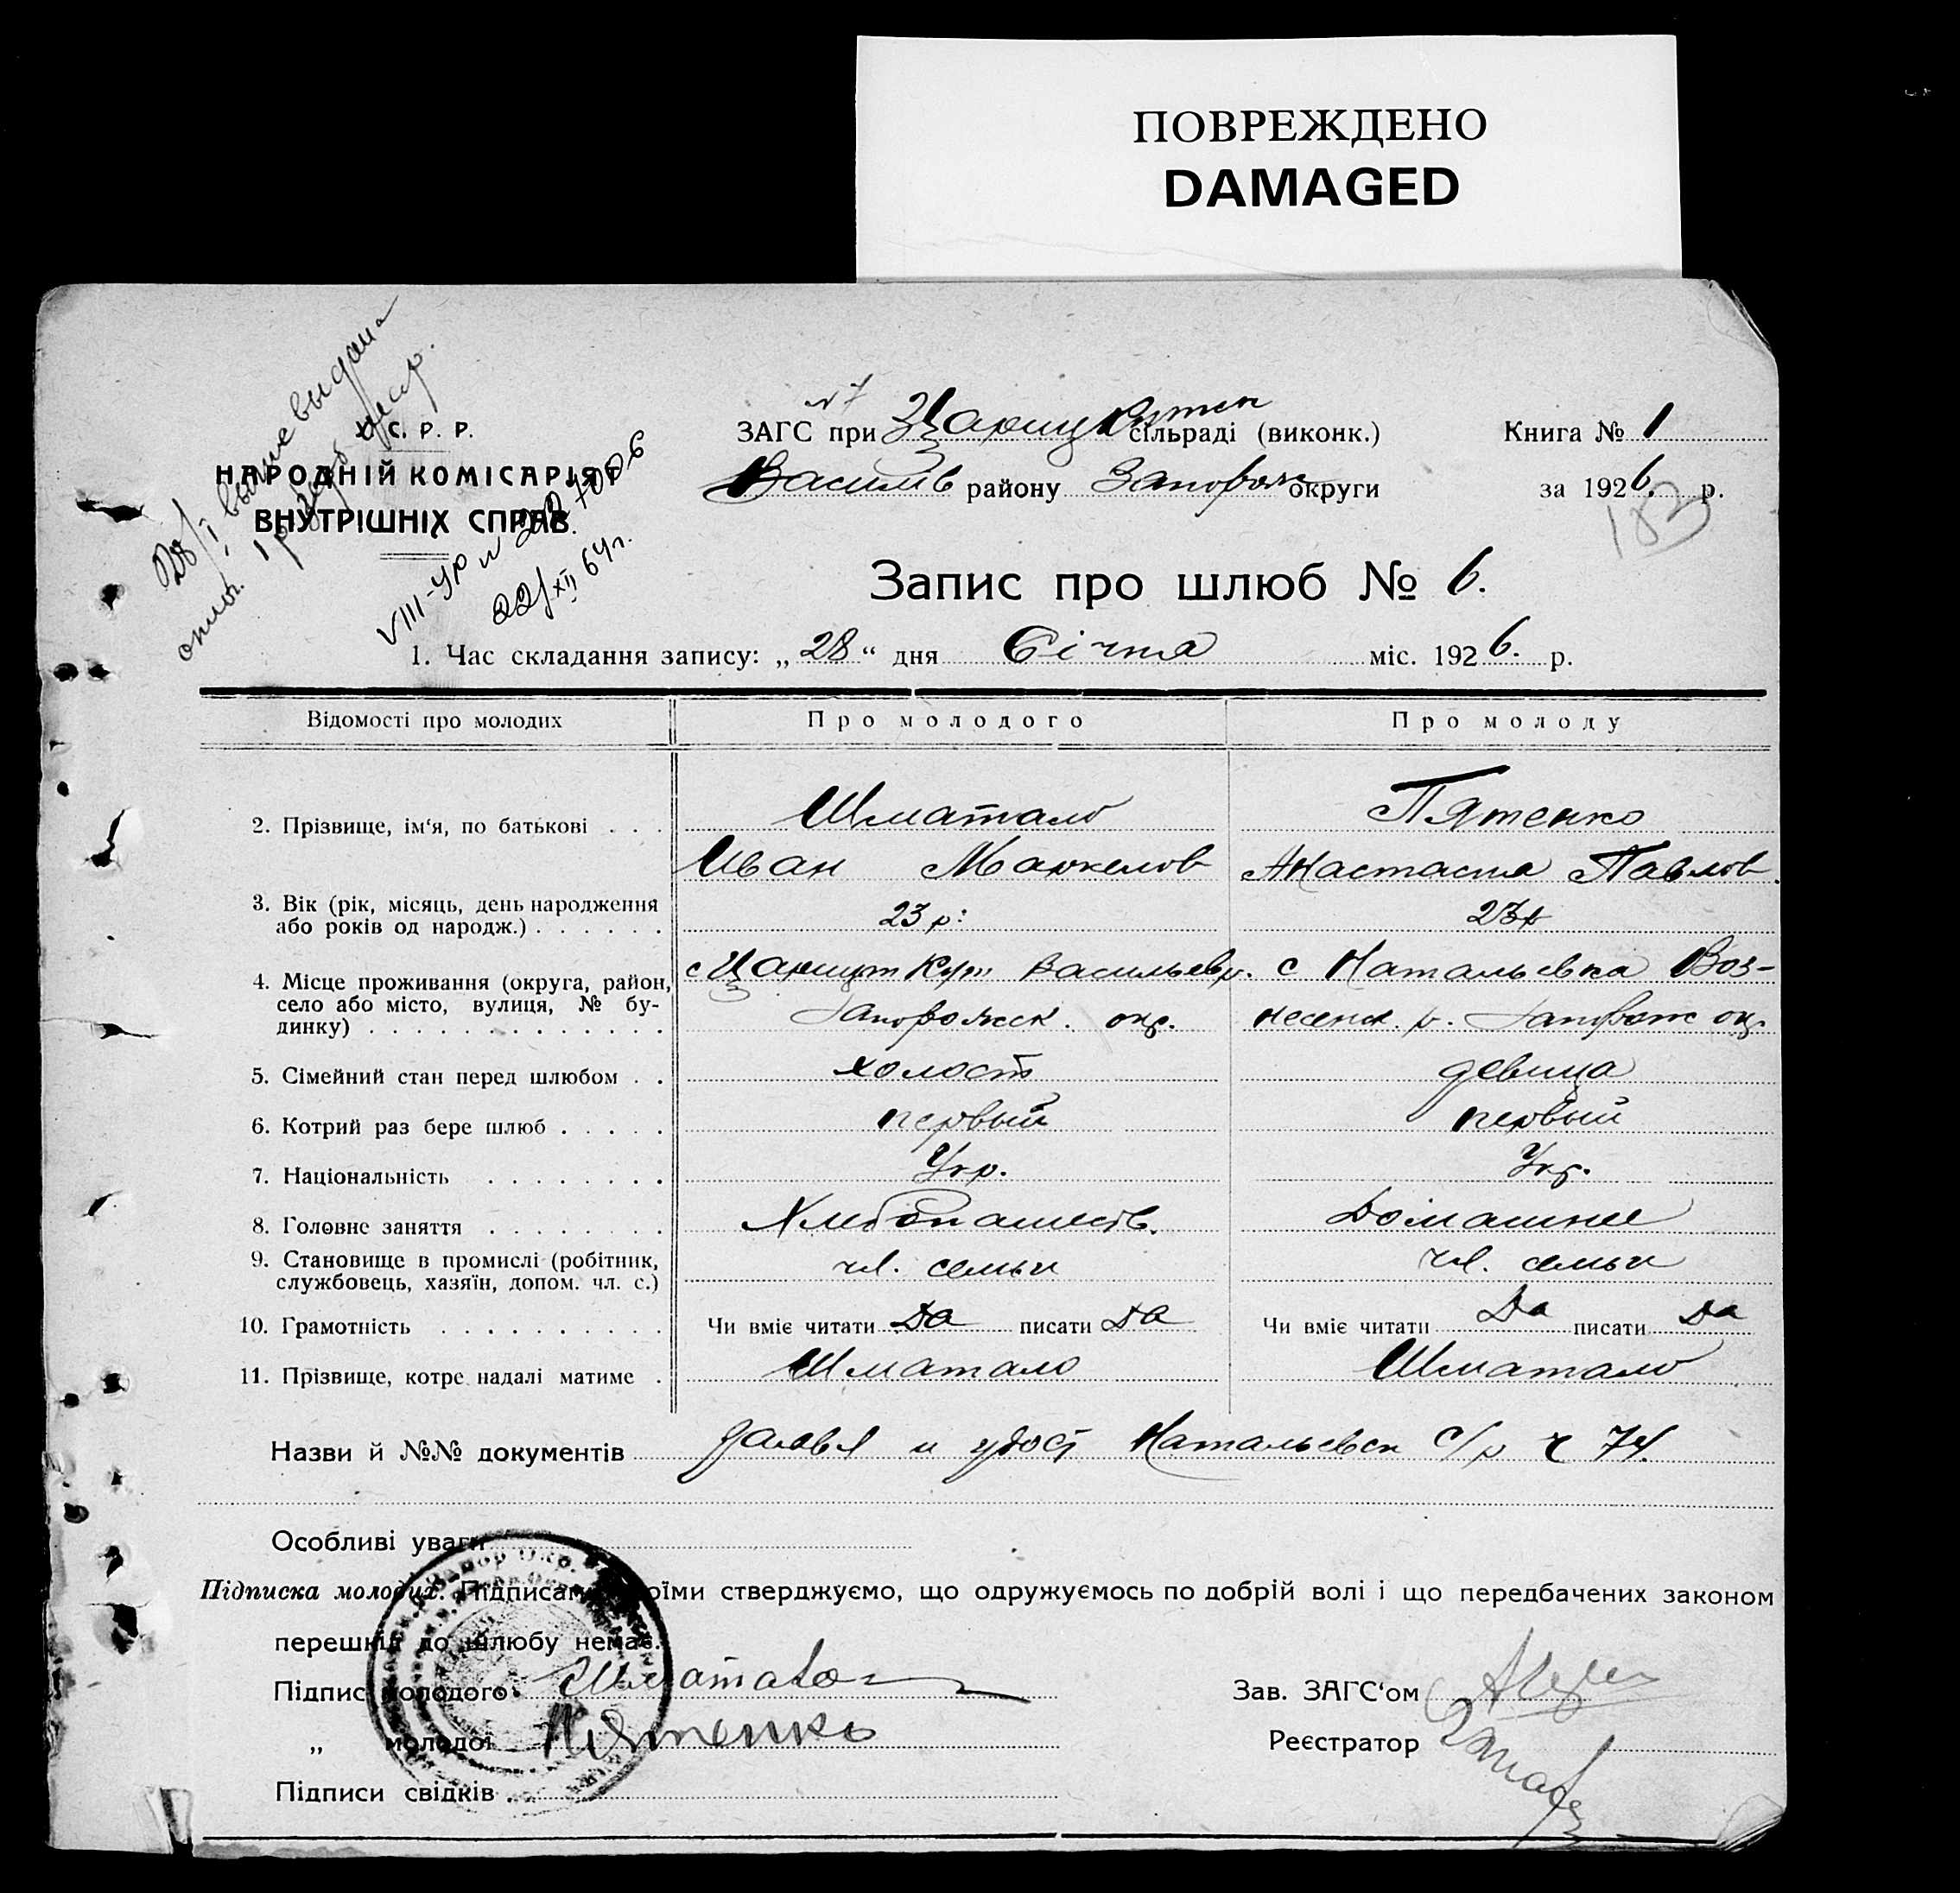 ПОВРЕЖДЕНО
DAMAGED
У. С. Р. Р.
НАРОДНІЙ КОМІСАРІЯТ
ВНУТРІШНІХ СПРАВ.
VIII-УР №
22/XII 64 г.
ЗАГС при сільраді (виконк.)
Книга № 1
Василів району Запорож округи
за 1926. р.
183
Запис про шлюб № 6.
1. Час складання запису: „28“ дня Січня міс. 1926. р.
Відомості про молодих Про молодого Про молоду
2. Прізвище, ім‘я, по батькові . . . Шматало Пятенко
Иван Маркелов Анастасия Павлов.
3. Вік (рік, місяць, день народження
або років од народж.) . . . . . . 23 р: 23 р
4. Місце проживання (округа, район, с Васильев р. с Натальевка Воз-
село або місто, вулиця, № бу-
динку) . . . . . . . . . . . . . Запорожск. окр. несенк. р. Запорож окр.
5. Сімейний стан перед шлюбом . . холост девица
6. Котрий раз бере шлюб . . . . . первый первый
7. Національність . . . . . . . . Укр. Укр.
8. Головне заняття . . . . . . . . Хлебопашеств. Домашнее
9. Становище в промислі (робітник,
службовець, хазяїн, допом. чл. с.) чл. семьи чл. семьи
10. Грамотність . . . . . . . . . . Чи вміє читати Да писати Да Чи вміє читати Да писати Да
11. Прізвище, котре надалі матиме . Шматало Шматало
Назви й №№ документів и удост Натальевск С/р ч 74.
Особливі уваги
Підписка молодих. Підписами своїми стверджуємо, що одружуємось по добрій волі і що передбачених законом
перешкод до шлюбу немає.
Підпис молодого Шматало
„ молодої Пятенко
Підписи свідків . .
Зав. ЗАГС‘ом
Реєстратор